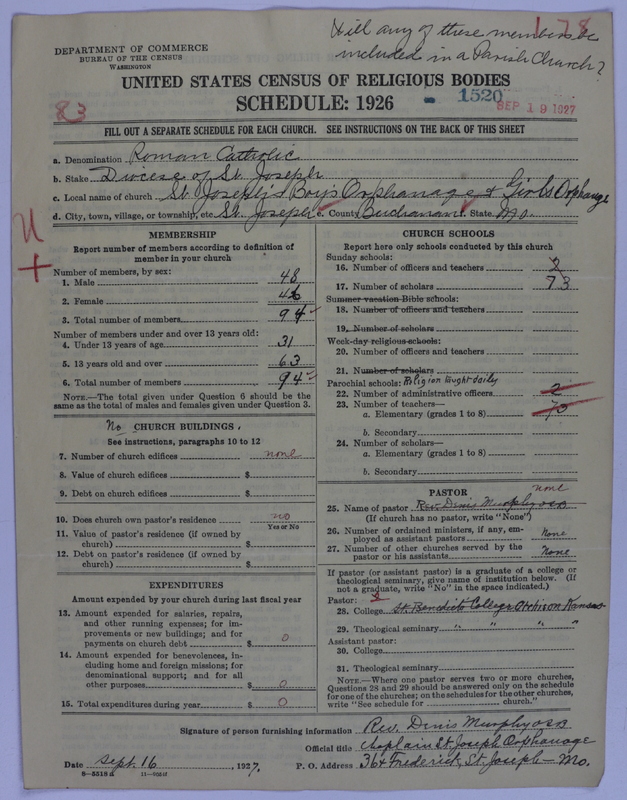 Will any of these members be
included in a Parish Church?
178
DEPARTMENT OF COMMERCE
BUREAU OF THE CENSUS
WASHINGTON
UNITED STATES CENSUS OF RELIGIOUS BODIES
SCHEDULE: 1926
83
- 1520
SEP 19 1927
FILL OUT A SEPARATE SCHEDULE FOR EACH CHURCH. SEE INSTRUCTIONS ON THE BACK OF THIS SHEET
a. Denomination Roman Catholic
b. Stake Diocese of St. Joseph
c. Local name of church St. Joseph's Boy's Orphanage & Girls Orphange
d. City, town, village, or township, etc. St. Joseph e. County Buchanan f. State Mo.
MEMBERSHIP
Report number of members according to definition of
member in your church
Number of members, by sex:
1. Male 48
2. Female 46
3. Total number of members 94
Number of members under and over 13 years old:
4. Under 13 years of age 31
5. 13 years old and over 63
6. Total number of members 94
NOTE.—The total given under Question 6 should be the
same as the total of males and females given under Question 3.
No CHURCH BUILDINGS.
See instructions, paragraphs 10 to 12
7. Number of church edifices none
8. Value of church edifices $
9. Debt on church edifices $
10. Does church own pastor's residence no
Yes or No
11. Value of pastor's residence (if owned by
church) $
12. Debt on pastor's residence (if owned by
church) $
EXPENDITURES
Amount expended by your church during last fiscal year
13. Amount expended for salaries, repairs,
and other running expenses; for im-
provements or new buildings; and for
payments on church debt $ 0
14. Amount expended for benevolences, in-
cluding home and foreign missions; for
denominational support; and for all
other purposes $ 0
15. Total expenditures during year $ 0
CHURCH SCHOOLS
Report here only schools conducted by this church
Sunday schools:
16. Number of officers and teachers 2
17. Number of scholars 73
Summer vacation Bible schools:
18. Number of officers and teachers
19. Number of scholars
Week-day religious schools:
20. Number of officers and teachers
21. Number of scholars
Parochial schools: Religion taught daily
22. Number of administrative officers 2
23. Number of teachers—
a. Elementary (grades 1 to 8) 73
b. Secondary
24. Number of scholars—
a. Elementary (grades 1 to 8)
b. Secondary
PASTOR
none
25. Name of pastor Rev. Denis Murphy OSB
(If church has no pastor, write "None")
26. Number of ordained ministers, if any, em-
ployed as assistant pastors None
27. Number of other churches served by the
pastor or his assistants None
If pastor (or assistant pastor) is a graduate of a college or
theological seminary, give name of institution below. (If
not a graduate, write "No" in the space indicated.)
Pastor:
28. College St. Benedict's College Atchison Kansas
29. Theological seminary " " " "
Assistant pastor:
30. College
31. Theological seminary
NOTE.—Where one pastor serves two or more churches,
Questions 28 and 29 should be answered only on the schedule
for one of the churches; on the schedules for the other churches,
write "See schedule for church."
Signature of person furnishing information Rev. Denis Murphy OSB
Official title Chaplain St. Joseph Orphanage
Date Sept. 16, 1927. P. O. Address 36th Frederick, St. Joseph - Mo.
8-5518a